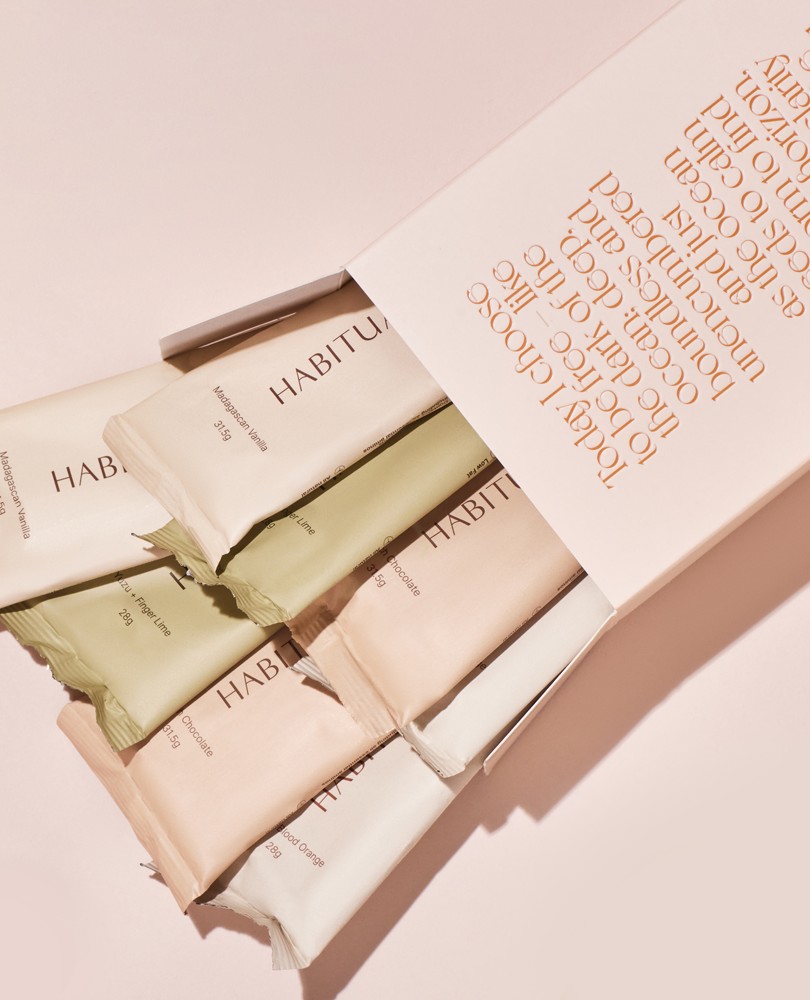 Today I choose
to be free – like
the dark of the
ocean, deep,
boundless and
unencumbered
and just
as the ocean
to calm
to find
horizon
clarity
HABITUA
Madagascan Vanilla
31.5g
All natural
HABI
Madagascan Vanilla
Low Fat
Finger Lime
+ Finger Lime
28g
HABITU
Chocolate
31.5g
HABIT
Chocolate
31.5g
HABI
Blood Orange
28g